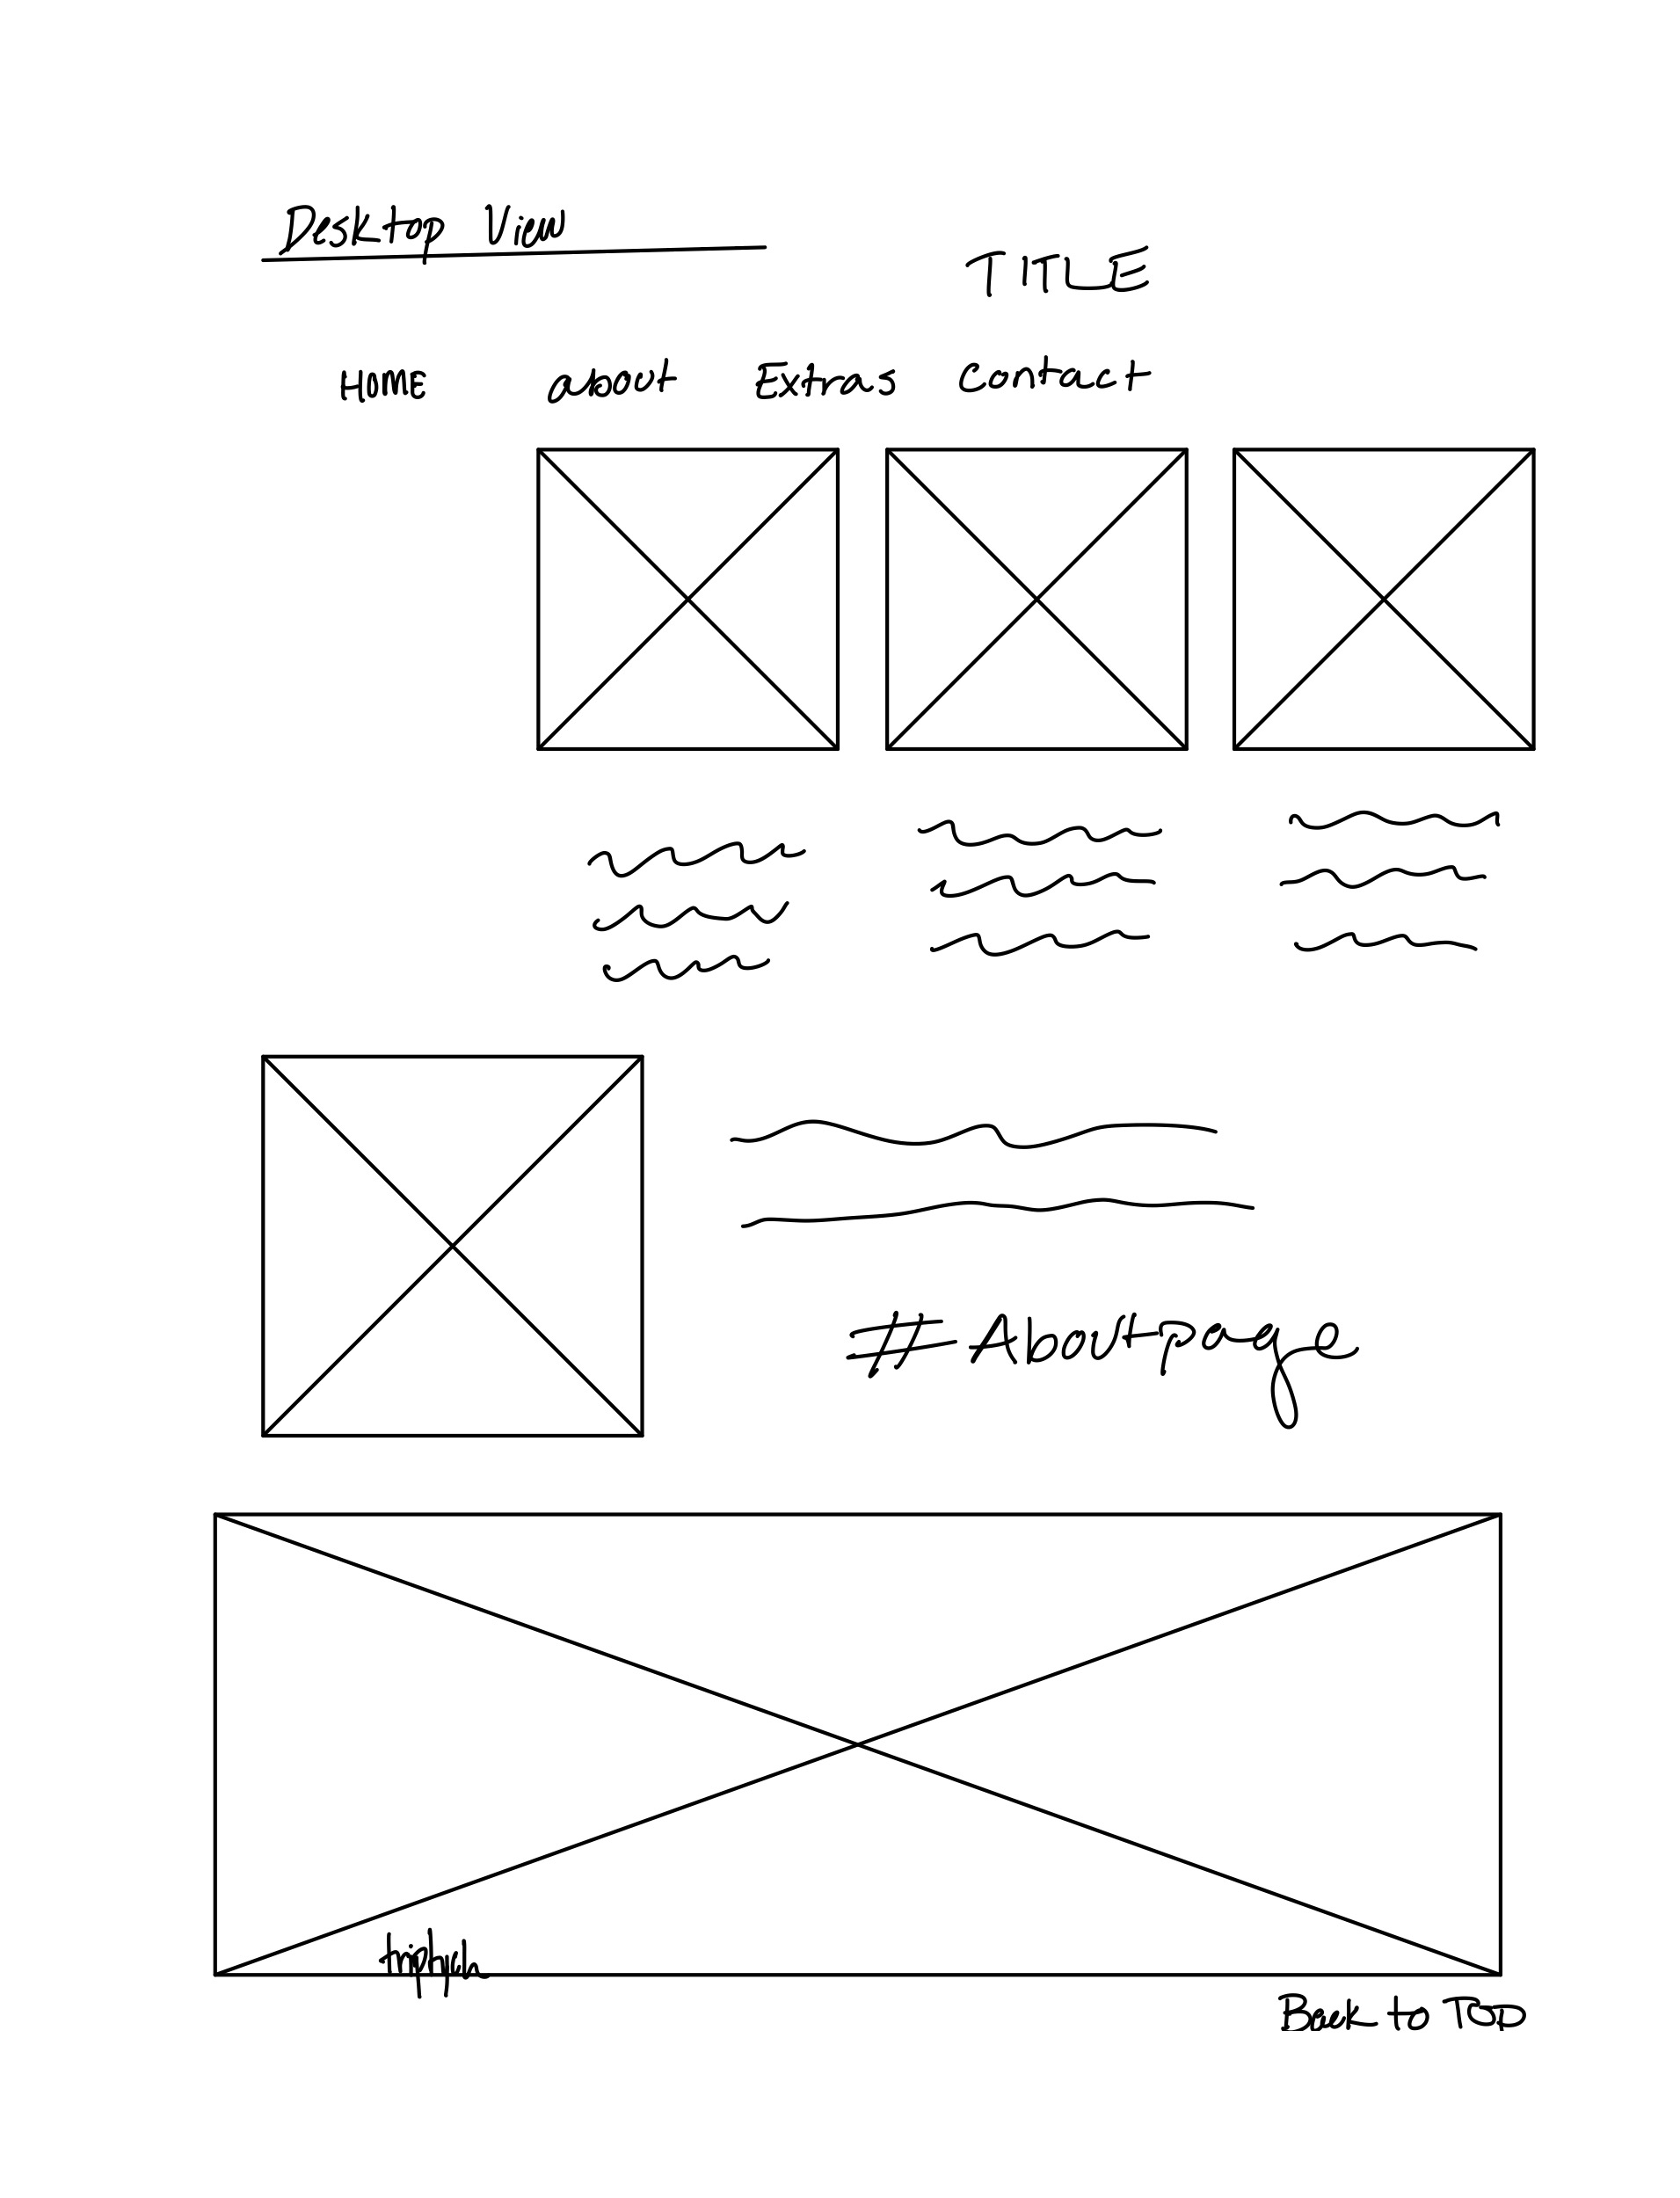 Desktop View
TITLE
HOME about Extras Contact
# Aboutpage
triptych
Back to TOP